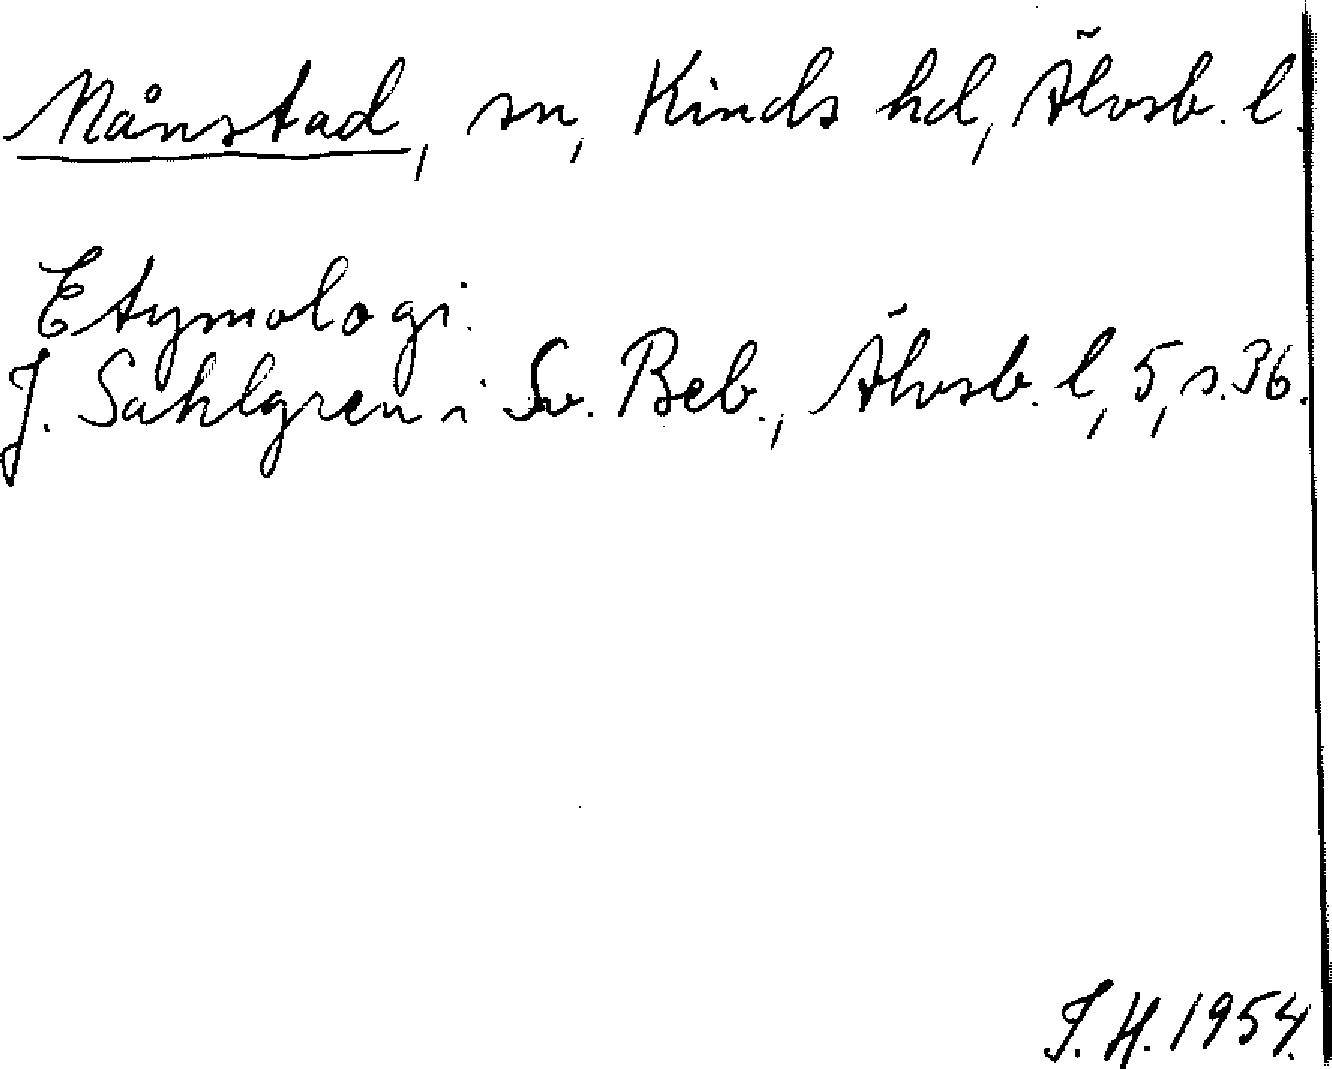 Månstad, sn, Kinds hd, Älvsb. l.
Etymologi.
J. Sahlgren i Sv. Beb., Älvsb. l, 5, s. 36.
I. H. 1954.